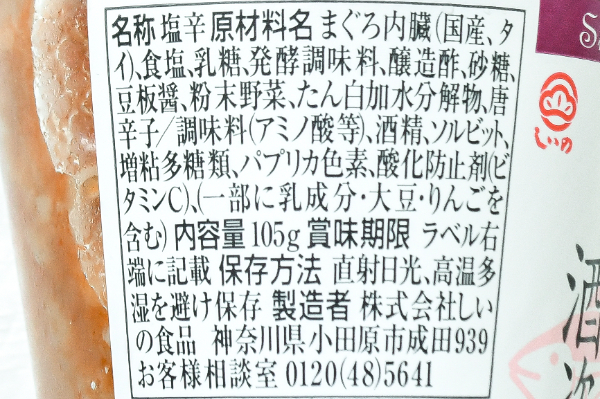 名称 塩辛 原材料名 まぐろ内臓(国産、タ
イ)、食塩、乳糖、発酵調味料、醸造酢、砂糖、
豆板醤、粉末野菜、たん白加水分解物、唐
辛子/調味料(アミノ酸等)、酒精、ソルビット、
増粘多糖類、パプリカ色素、酸化防止剤(ビ
タミンC)、(一部に乳成分・大豆・りんごを
含む) 内容量 105g 賞味期限 ラベル右
端に記載 保存方法 直射日光、高温多
湿を避け保存 製造者 株式会社しい
の食品 神奈川県小田原市成田939
お客様相談室 0120(48)5641
しいの
酒